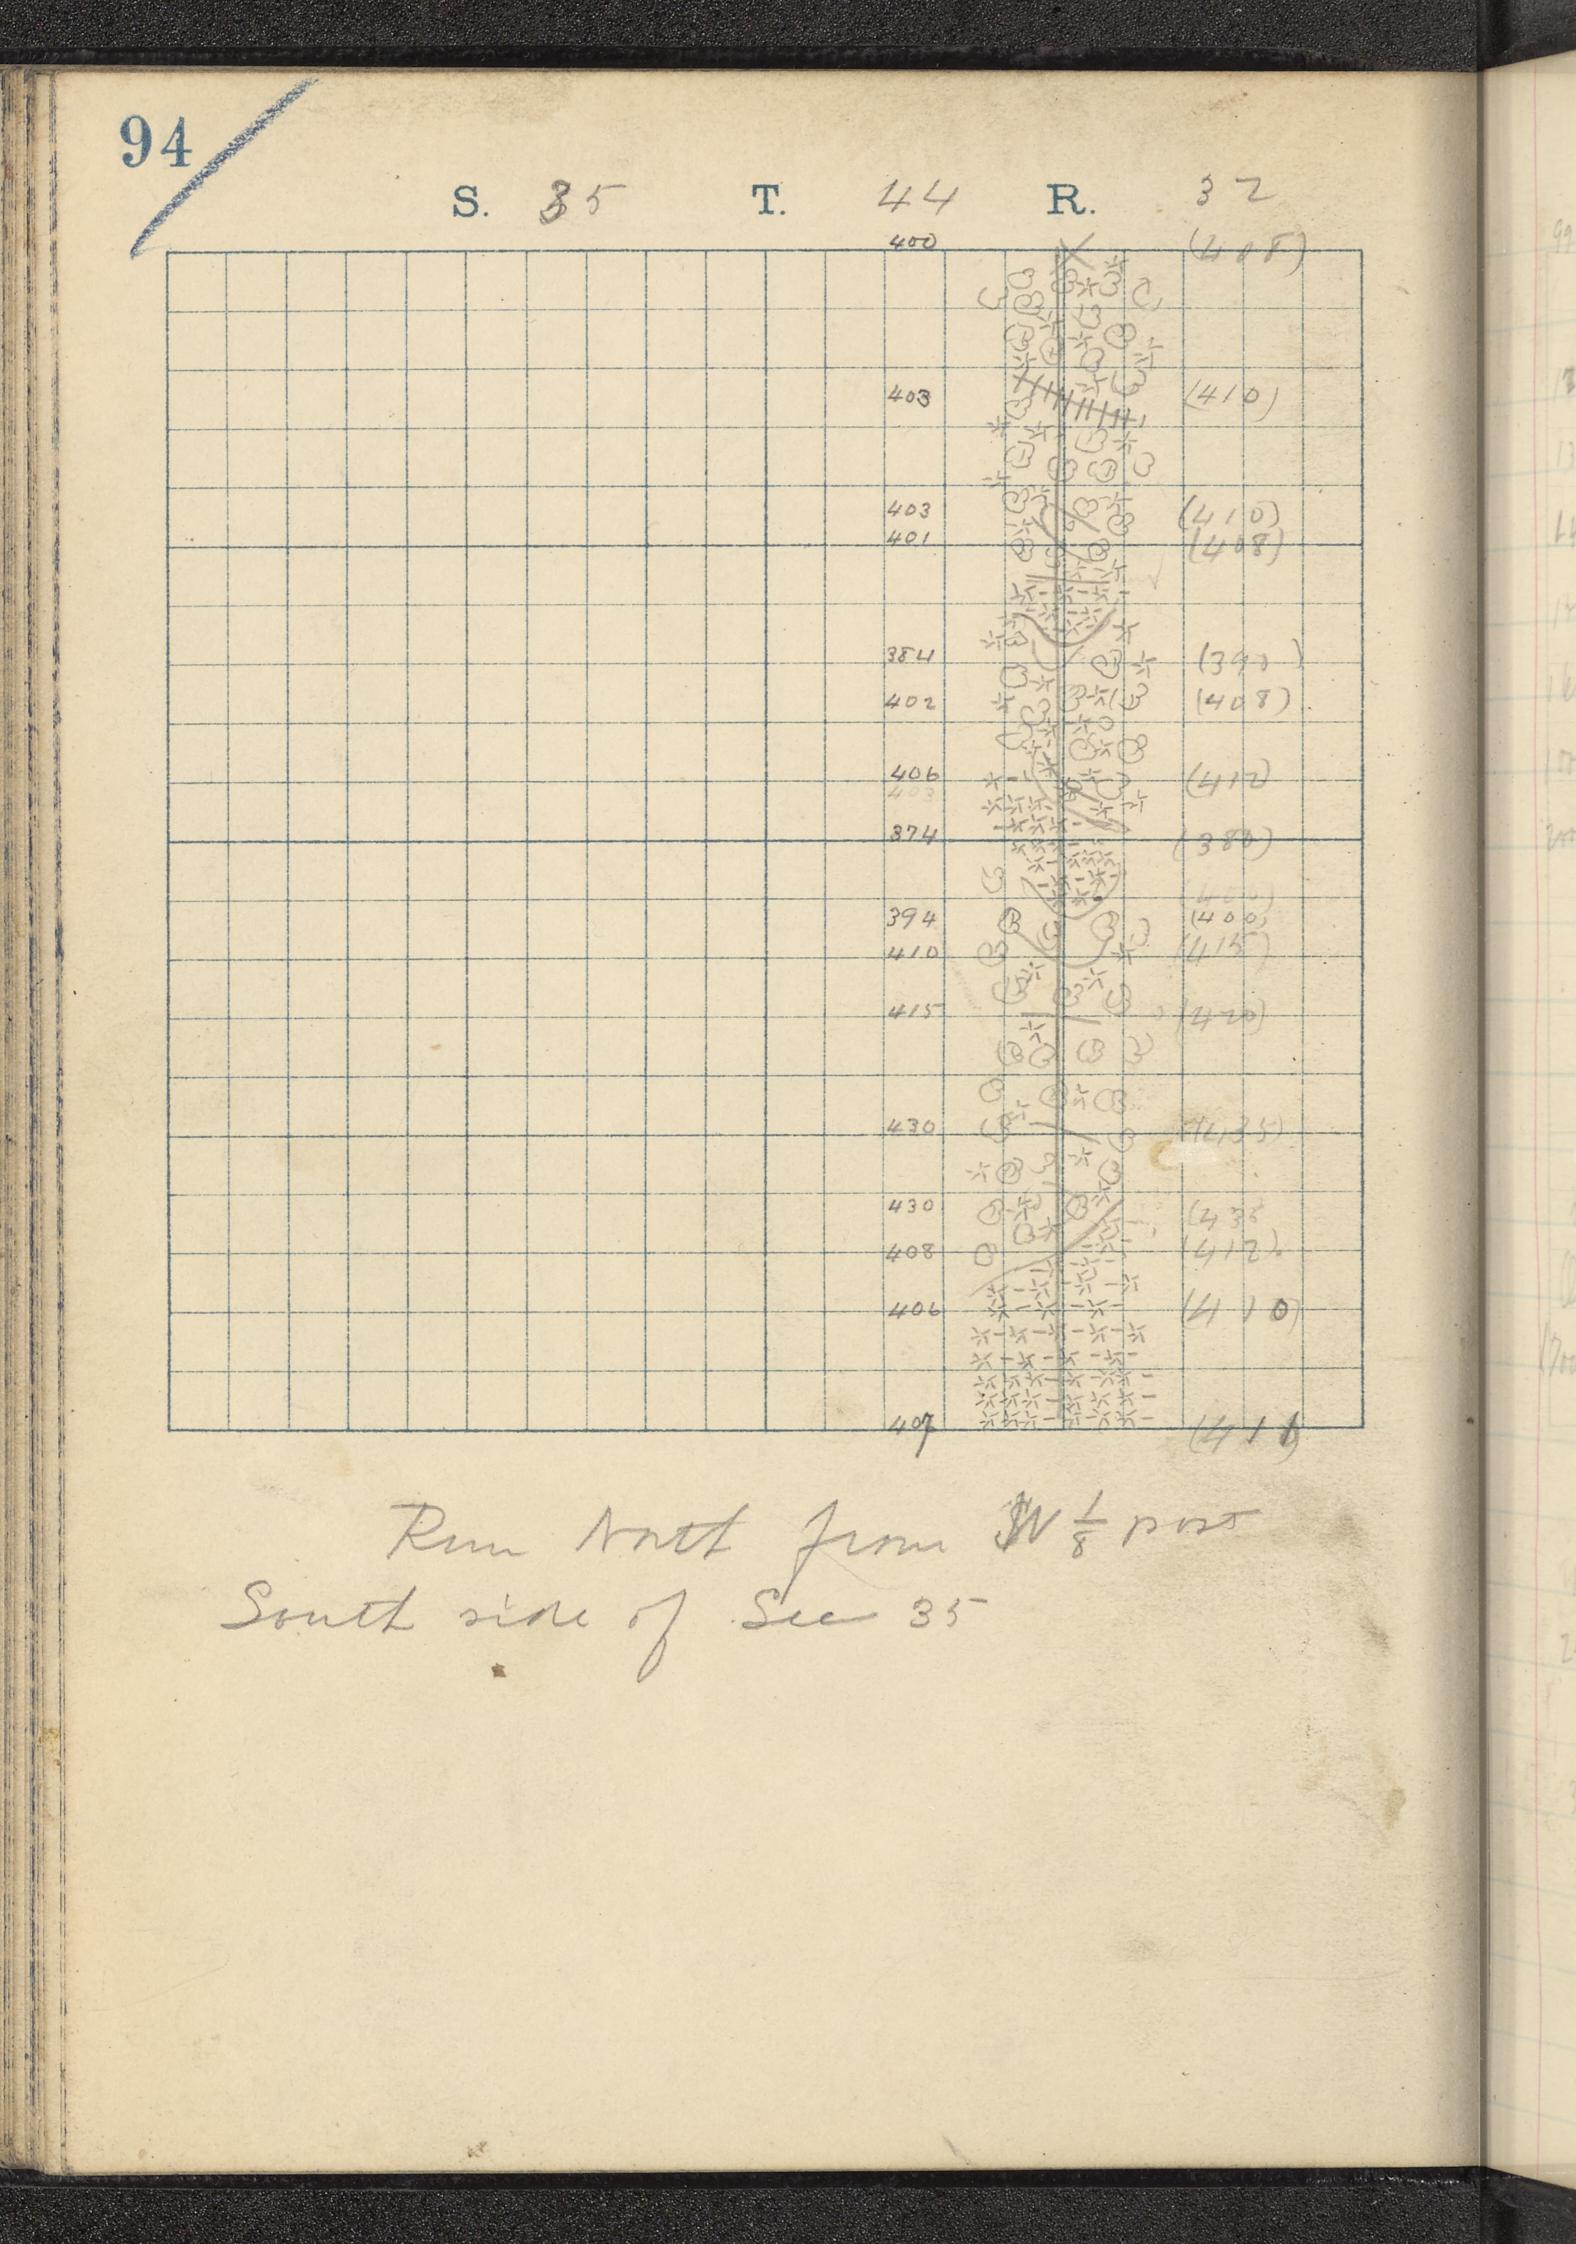 94
S. 35 T. 44 R. 32
400 (408)
403 (410)
403 (410)
401 (408)
384 (390)
402 (408)
406 (412)
403
374 (380)
(400)
394 (400)
410 (415)
415 (420)
430 (435)
430 (435
408 (412)
406 (410)
407 (411)
Run North from W 1/8 post
South side of Sec 35